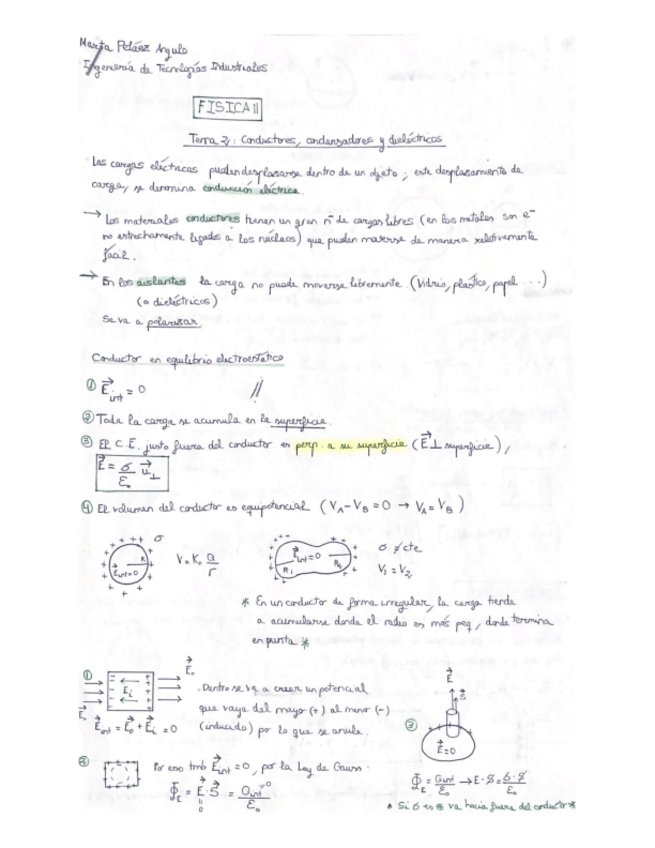 Marta Peláez Angulo
Ingeniería de Tecnologías Industriales
FISICA II
Tema 2: Conductores, condensadores y dieléctricos
Las cargas eléctricas pueden desplazarse dentro de un objeto; este desplazamiento de
carga, se denomina conducción eléctrica.
→ Los materiales conductores tienen un gran nº de cargas libres (en los metales son e⁻
no estrechamente ligados a los núcleos) que pueden moverse de manera relativamente
fácil.
→ En los aislantes la carga no puede moverse libremente (Vidrio, plástico, papel ...)
(o dieléctricos)
Se va a polarizar.
Conductor en equilibrio electroestático
① E⃗int = 0 //
② Toda la carga se acumula en la superficie.
③ El C.E. justo fuera del conductor es perp. a su superficie (E⃗ ⊥ superficie),
E⃗ = σ/ε₀ u⃗⊥
④ El volumen del conductor es equipotencial (VA - VB = 0 → VA = VB)
σ
R
E⃗int = 0
V = K. Q/r
E⃗int = 0
R₁ R₂
σ ≠ cte
V₁ = V₂
* En un conductor de forma irregular, la carga tiende
a acumularse donde el radio es más peq, donde termina
en punta *
① E⃗i E⃗o
. Dentro se va a crear un potencial
que vaya del mayo (+) al menor (-)
(inducido) por lo que se anula.
E⃗o
E⃗int = E⃗o + E⃗i = 0
② Por eso tmb E⃗int = 0, por la Ley de Gauss.
ΦE = E⃗ · S⃗ = Qint/ε₀
0
③ E⃗
S⃗
E⃗ = 0
ΦE = Qint/ε₀ → E · S = σ · S/ε₀
* Si σ es ⊕ va hacia fuera del conductor *